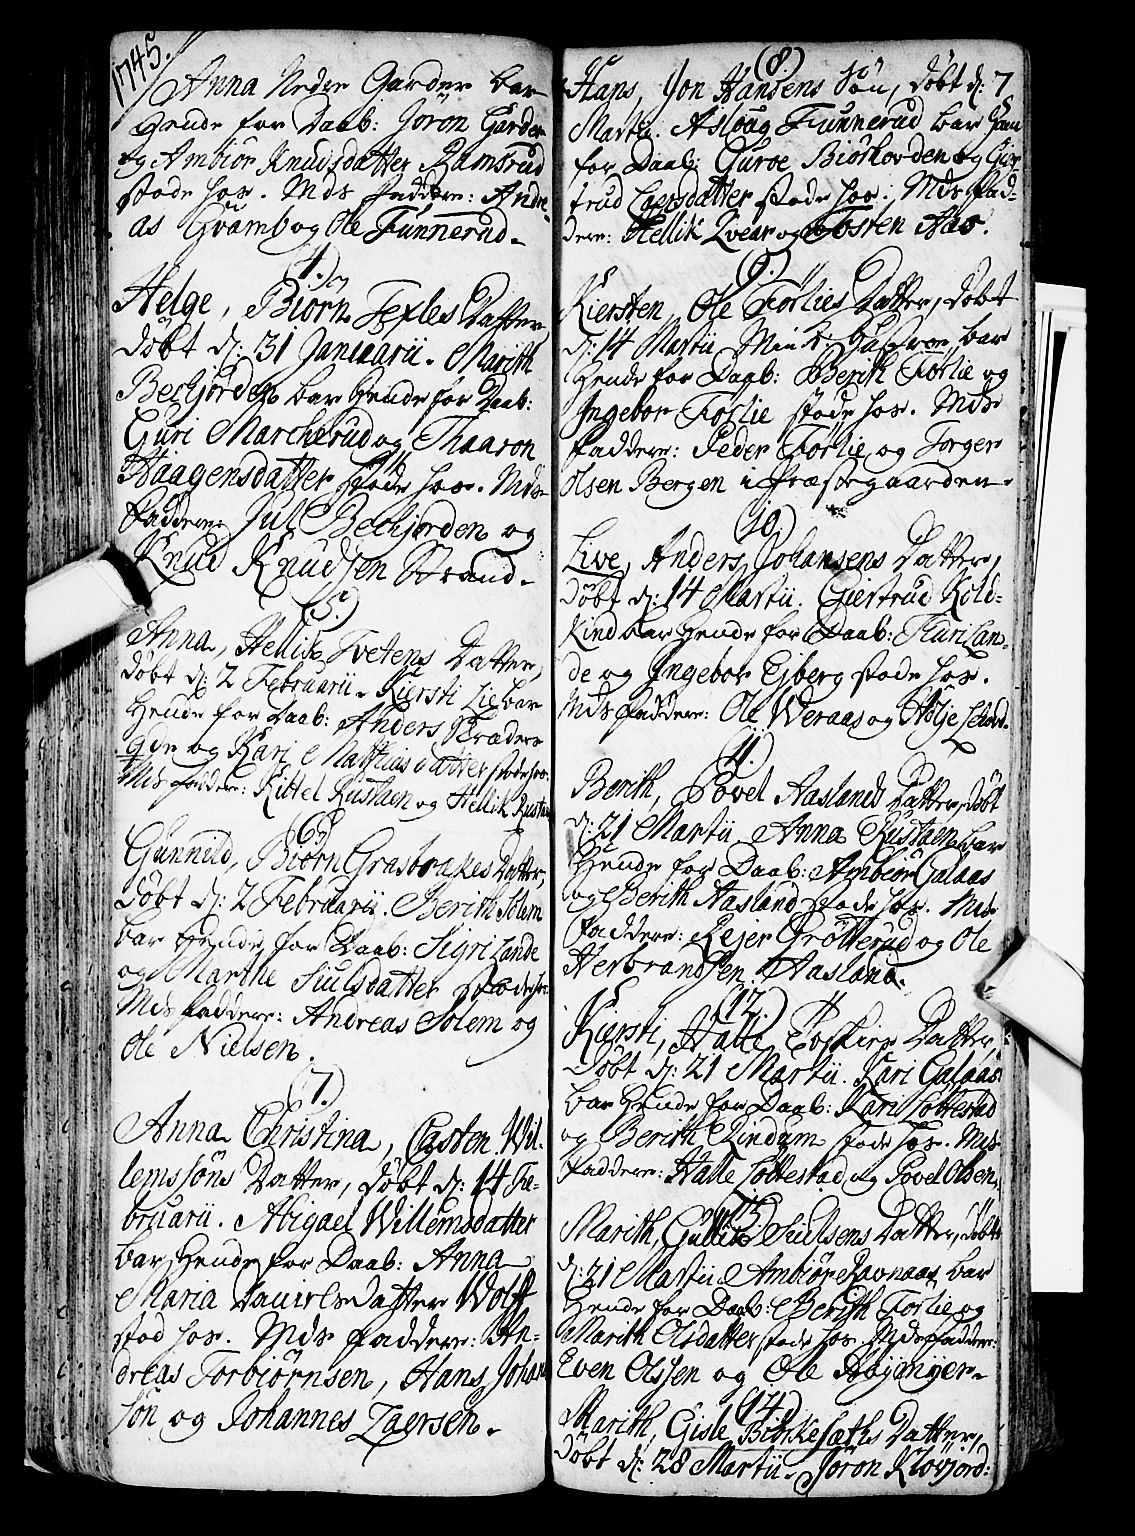 1745.
Anna Nedre Garder bar
hende for Daab: Jøron Garder
og Ambiør Knudsdatter Ramsrud
stode hos. Mds faddere: Andre-
as Qvamb og Ole Funnerud.
4.
Helge, Biørn Texles Datter
døbt d: 31 Januarii. Marith
Bechjorden bar hende for Daab:
Guri Marcherud og Thaaron
Haagensdatter stode hos. Mds
Faddere Jul Bechjorden og
Knud Knudsen Strand.
5.
Anna, Hellik Tvetens Datter,
døbt d: 2 Februarii. Kiersti Lie bar
hende for Daab: Anders
og Kari Mathiasdatter stode hos.
Mds faddere: Kittel Rustaen og Hellik Rustaen
6.
Gunnild, Biørn Grasbrakes Datter,
døbt d: 2 Februarii. Berith Solem
bar hende for Daab: Sigri Lande
og Marthe Siulsdatter stode hos.
Mds faddere: Andreas Solem og
Ole Nielsen.
7.
Anna Christina, Casten Wil-
lemssøns Datter, døbt d: 14 Fe-
bruarii. Abigael Willemsdatter
bar hende for Daab: Anna
Maria Lauridsdatter Wolff
stod hos. Mds faddere: An-
dreas Torbiørnsen, Hans Johan
søn og Johannes Larsen.
(8)
Hans, Jon Hansens Søn, døbt d: 7
Martii. Aslaug Funnerud bar ham
for Daab: Guroe Biørkorden og Gier
trud Larsdatter stode hos. Mds fad-
dere: Hellik Qvear og Tosten Aas.
9.
Kiersten, Ole Førlies Datter, døbt
d: 14 Martii. Mins. bar
hende for Daab: Berith Førlie og
Ingebor Førlie stode hos. Mds
faddere: Peder Førlie og Torger
Olsen Bergen i Præstegaarden.
10.
Live, Anders Johansens Datter,
døbt d: 14 Martii. Giertrud Kold-
kind bar hende for Daab: Turi Lan-
de og Ingebor Ejberg stode hos.
Mds faddere: Ole Weraas og Holje
11.
Berith, Povel Aaslands Datter, døbt
d: 21 Martii. Anna Rustaen bar
hende for Daab: Ambiør Galaas
og Berith Aasland stode hos. Mds
faddere: Rejer Grøtterud og Ole
Herbrandsen Aasland.
12.
Kiersti, Halle Datter,
døbt d: 21 Martii. Kari Galaas
bar hende for Daab: Kari Lottestad
og Berith Rindum stode hos. Mds
faddere: Halle Lottestad og Povel Olsen.
13.
Marith, Gullik Siulsens Datter, døbt
d: 21 Martii. Ambiør Ravnaas bar
hende for Daab: Berith Førlie og
Marith Olsdatter stode hos. Mds faddere:
Even Olssen og Ole
14.
Marith, Gisle Biørkesæths Datter,
døbt d: 28 Martii. Jøron Kløvjord: